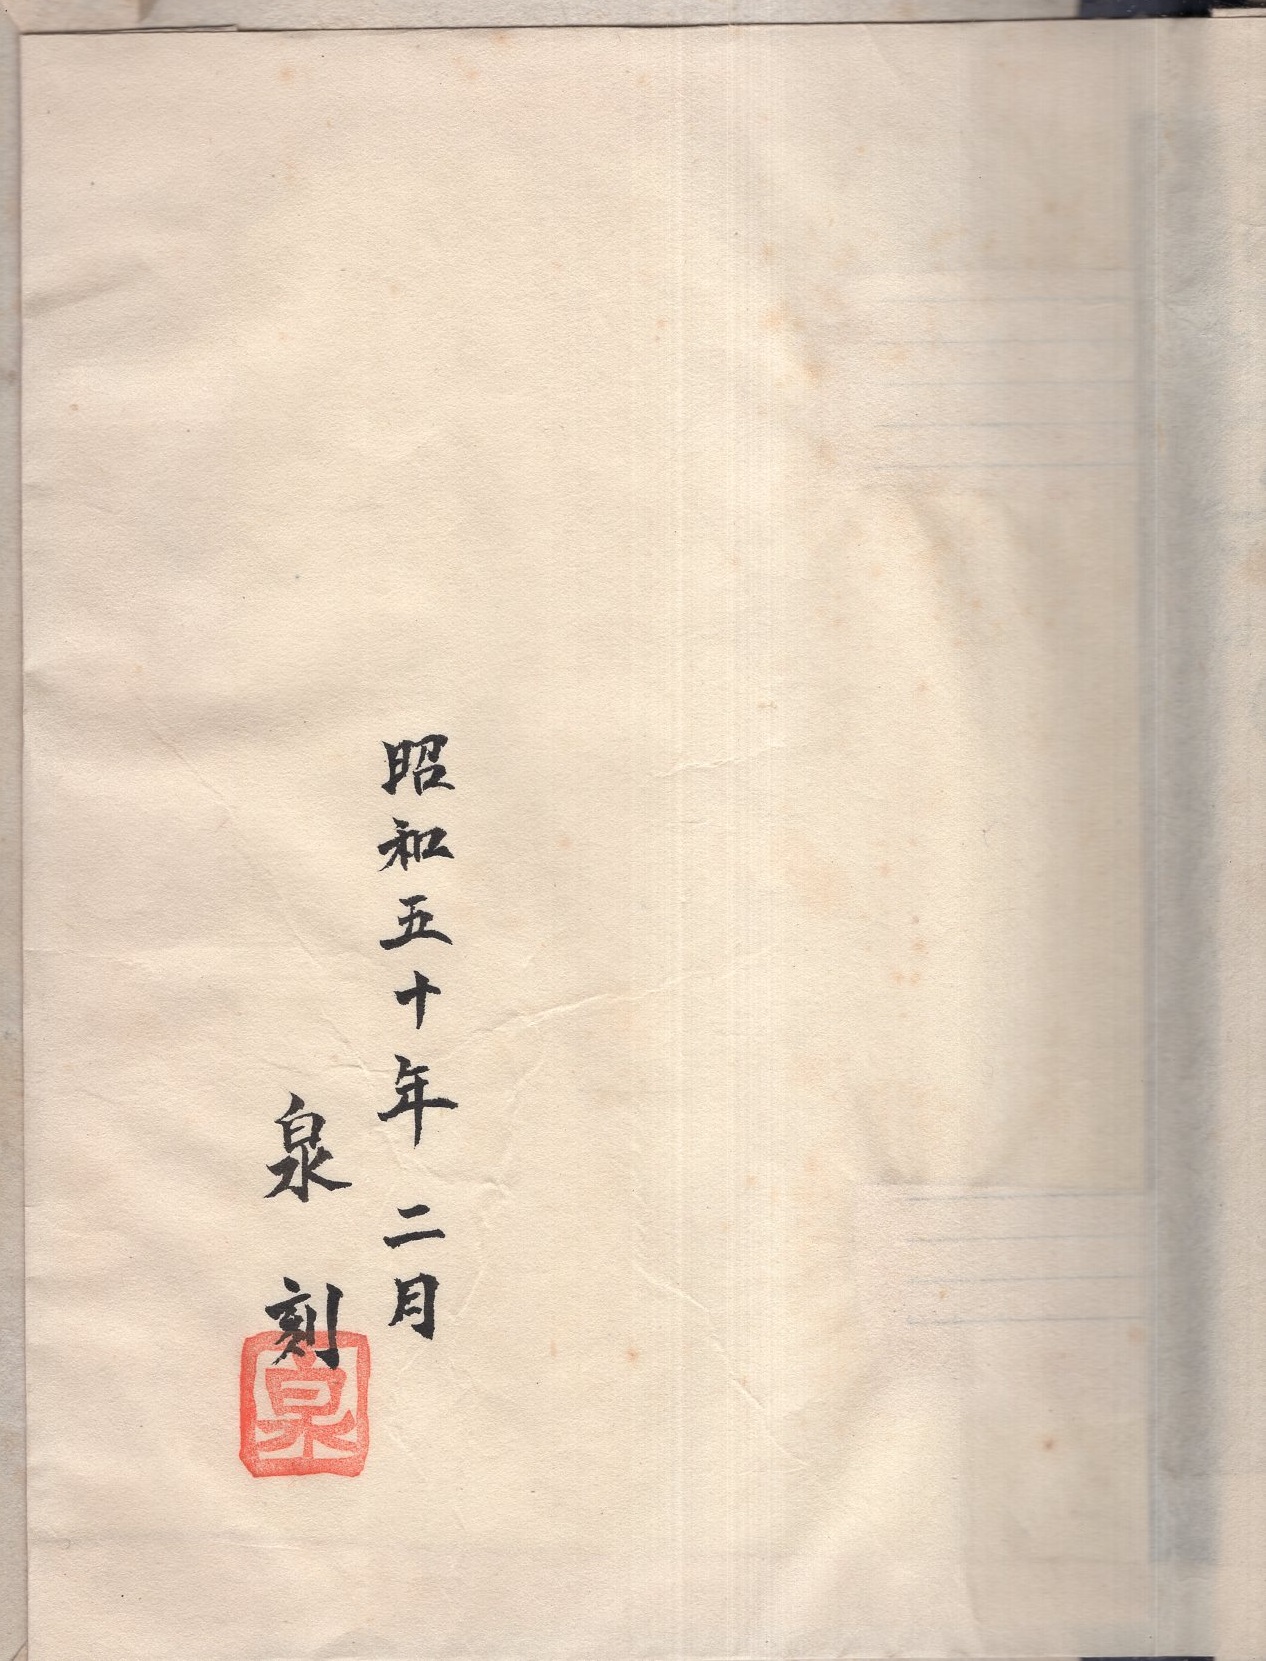 昭和五十年 二月
泉 刻
泉